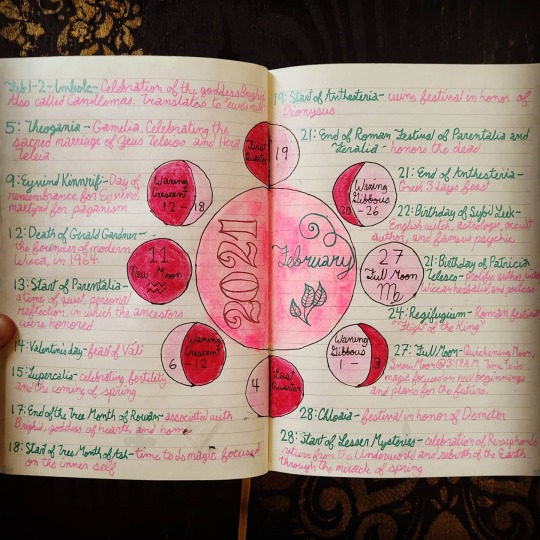 Feb 1-2 - Imbolc - Celebration of the goddess Brighid
Also called Candlemas. Translates to "ewe's milk"
5: Theogamia - Gamelia, Celebrating the
sacred marriage of Zeus Teleios and Hera
Teleia
9: Eyvind Kinnrifi - Day of
remembrance for Eyvind,
martyr for paganism
12: Death of Gerald Gardner -
the founder of modern
Wicca, in 1964
13: Start of Parentalia -
a time of quiet, personal
reflection, in which the ancestors
were honored
14: Valentine's day - feast of Vali
15: Lupercalia - celebrating fertility
and the coming of spring
17: End of the Tree Month of Rowan - associated with
Brighid, goddess of hearth and home
18: Start of Tree Month of Ash - time to do magic focused
on the inner self
First
Quarter
19
Waxing
Crescent
12 - 18
11
New Moon
Waning
Crescent
6 - 12
4
Last
Quarter
Waning
Gibbous
1 - 3
27
Full Moon
Waxing
Gibbous
20 - 26
2021
February
19: Start of Anthesteria - wine festival in honor of
Dionysus
21: End of Roman Festival of Parentalia and
Feralia - honors the dead
21: End of Anthesteria -
Greek 3 days feast
22: Birthday of Sybil Leek -
English witch, astrologer, occult
author, and famous psychic
21: Birthday of Patricia
Telesco - prolific author,
Wiccan herbalist and poetess
24: Regifugium - Roman festival
"Flight of the King"
27: Full Moon - Quickening Moon,
Snow Moon @ 3:17 A.M. Time
magic focused on new beginnings
and plans for the future.
28: Chloaia - festival in honor of Demeter
28: Start of Lesser Mysteries - celebration of Persephone's
return from the Underworld and rebirth of the Earth
through the miracle of spring